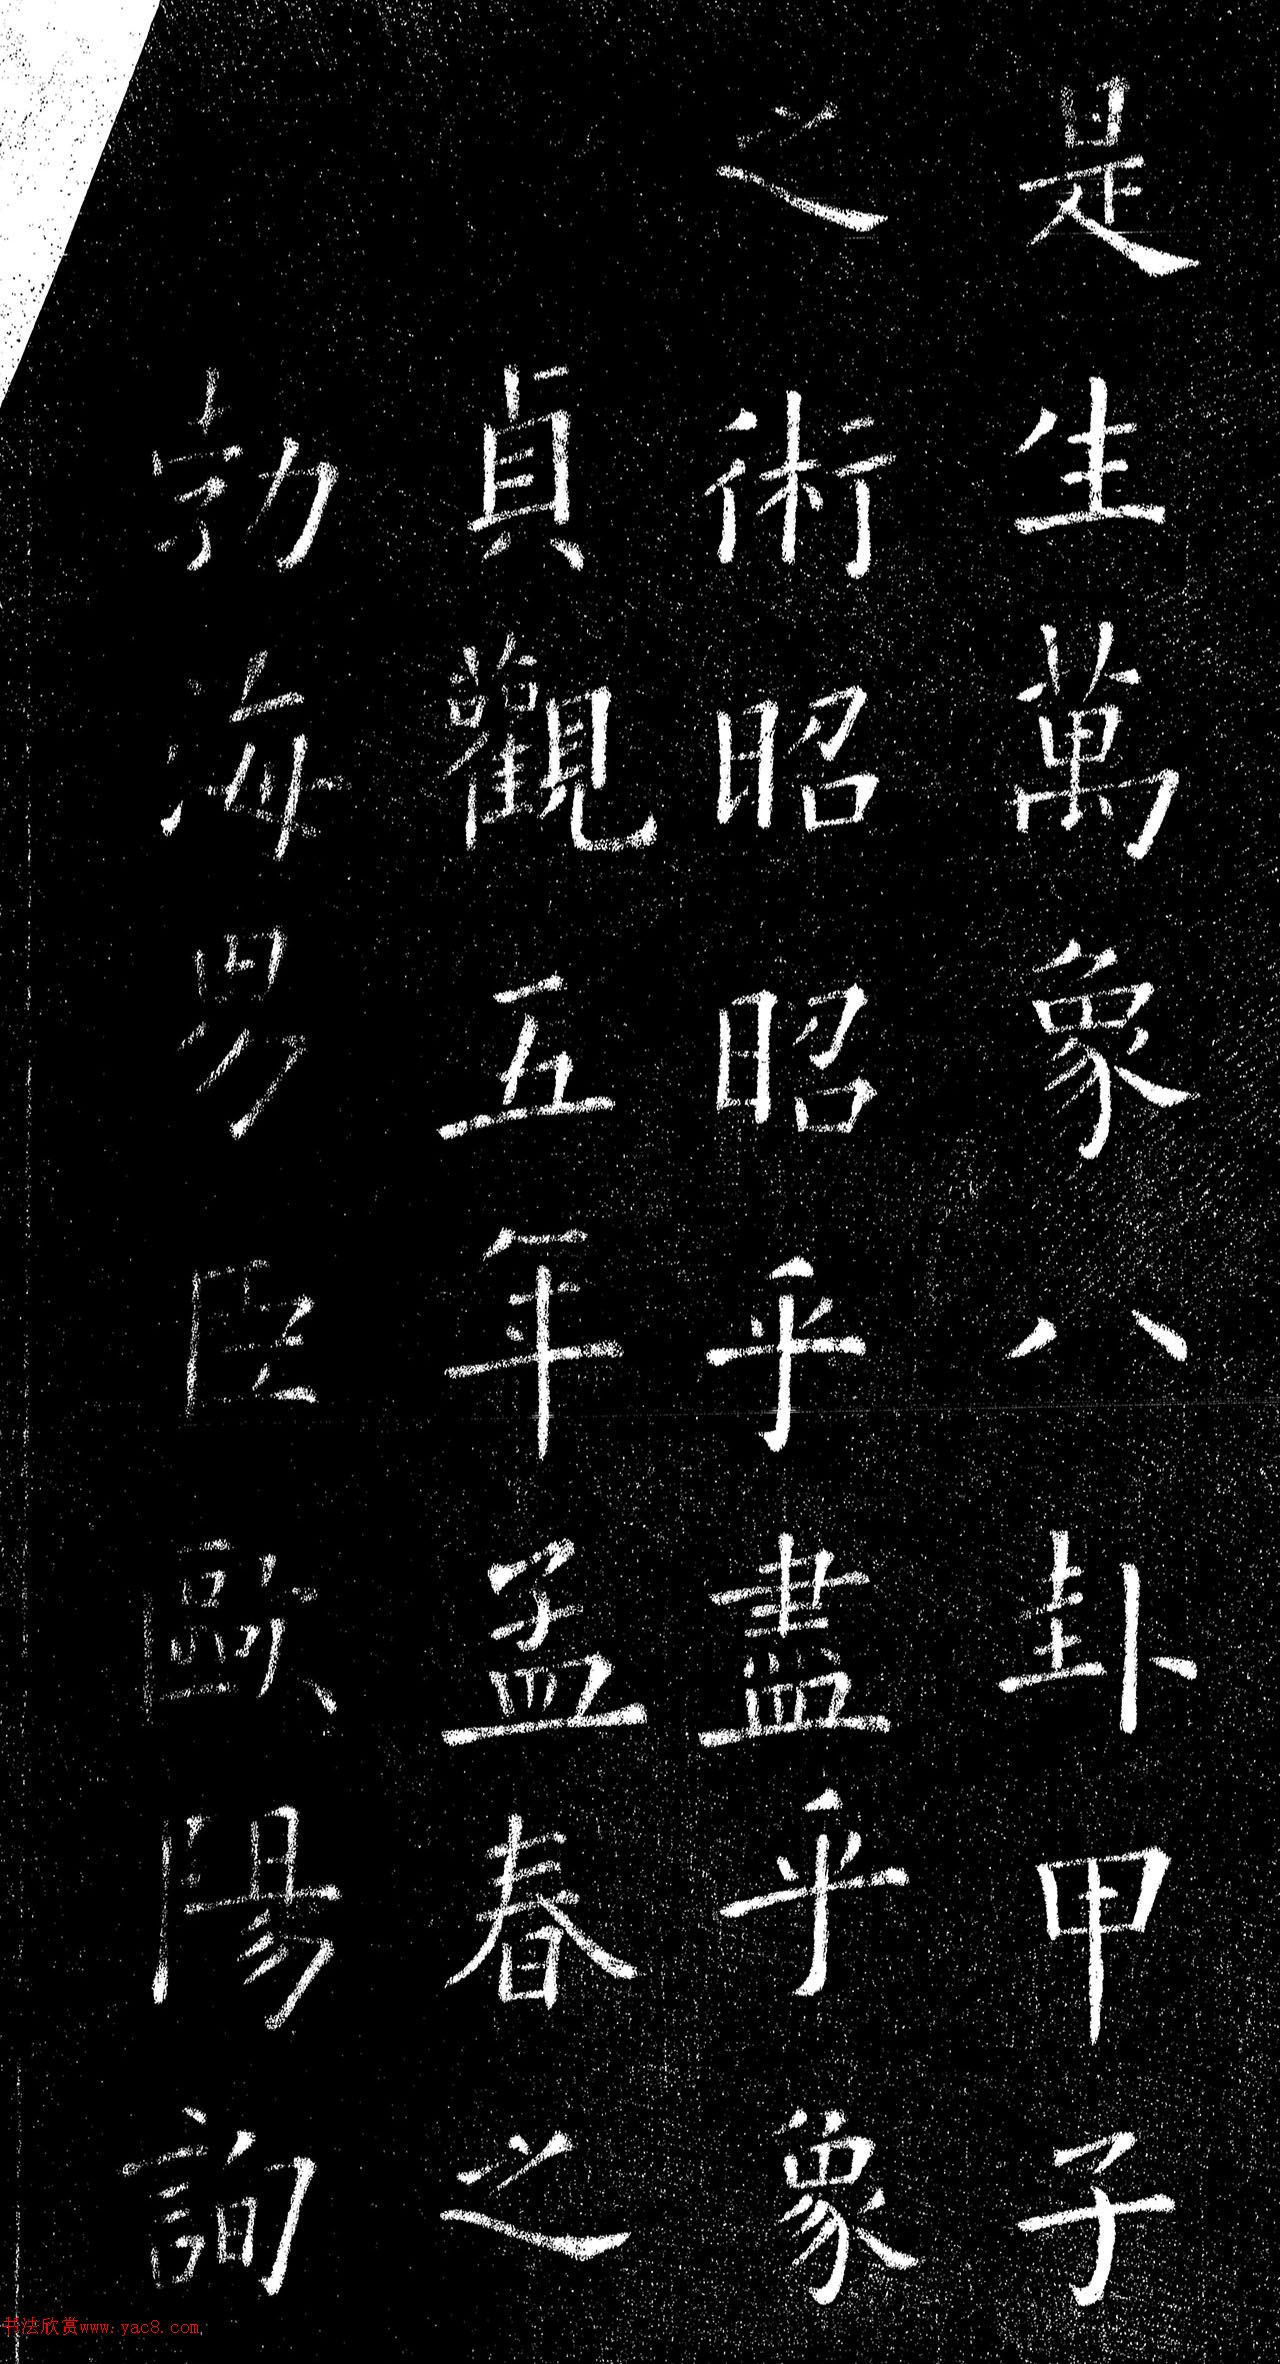 是生萬象八卦甲子
之術昭昭乎盡乎象
貞觀五年孟春之
勃海男臣歐陽詢
书法欣赏www.yac8.com